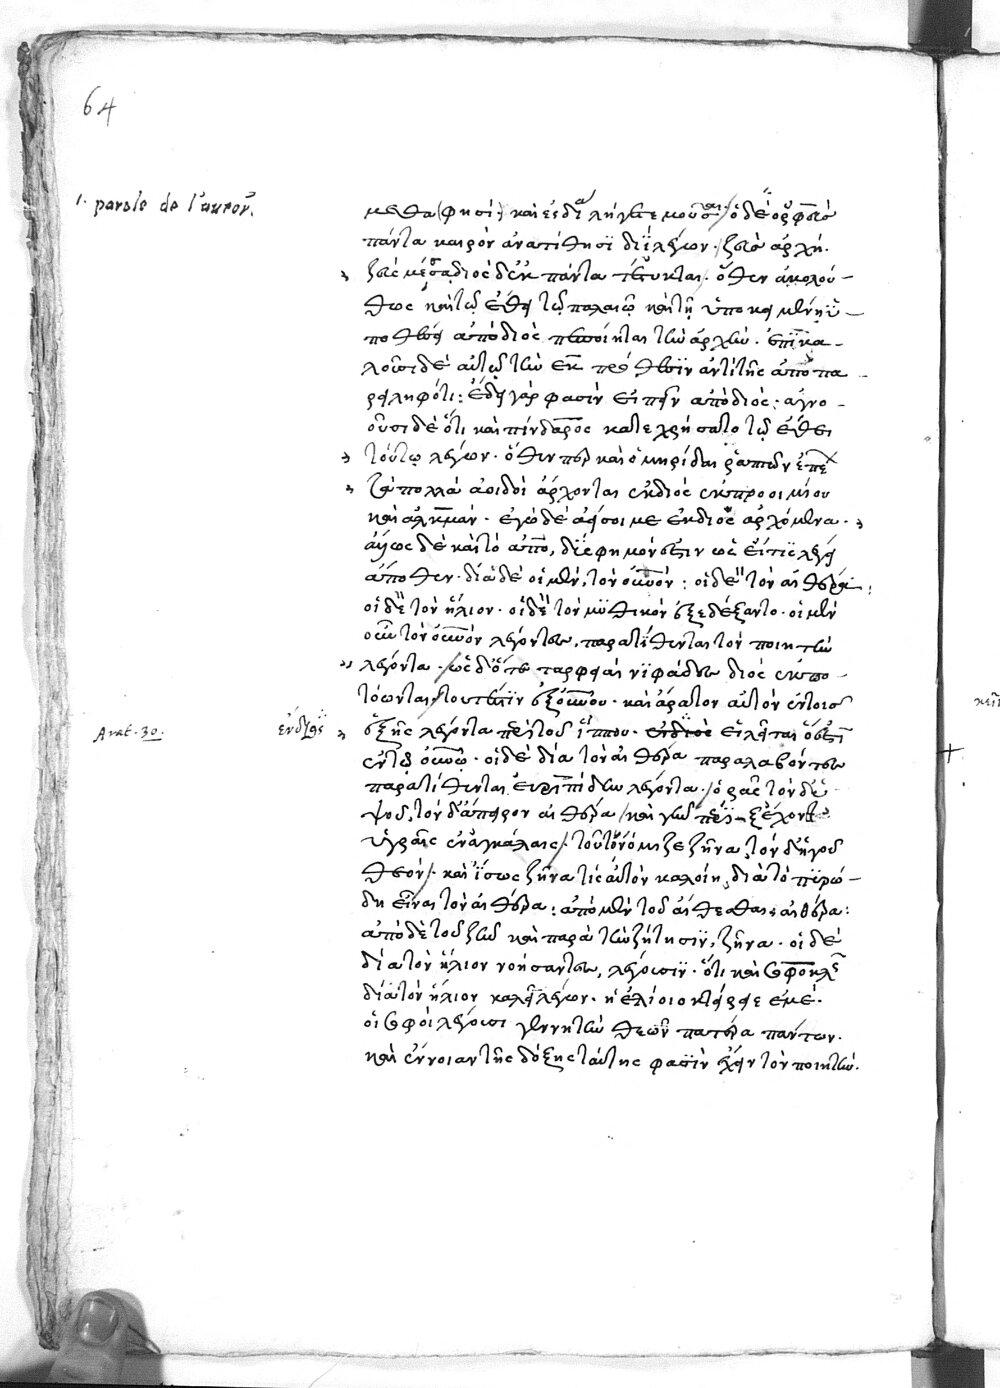 64
1. parole de l'auteur.
μεθα (φησὶ) καὶ ἐς δία λήγετε μοῦσαι / ὁ δὲ ὀρφεὺς
πάντα καιρὸν ἀνατίθησϊ διῒ λέγων. ζεὺς ἀρχή.
ζεὺς μέσσα διὸς δ' ἐκ πάντα τέτυκται. ὅθεν ἀκολού-
θως καὶ τῷ ἔθει τῷ παλαιῷ καὶ τῇ ὑποκειμένῃ ὑ-
ποθέσει ἀπὸ διὸς πεποίηται τὴν ἀρχήν. ἐπικα-
λοῦσι δὲ αὐτῷ τὴν ἐκ πρόθεσϊν ἀντὶ τῆς ἀπὸ πα-
ρειληφότι: ἔδει γάρ φασὶν εἰπεῖν ἀπὸ διὸς: ἀγνο-
οῦσι δὲ ὅτι καὶ πίνδαρος κατεχρήσατο τῷ ἔθει
τούτῳ λέγων. ὅθεν περ καὶ ὁμηρίδαι ῥαπτῶν ἐπέ
ων πολλὰ ἀοιδοὶ ἄρχονται ἐκ διὸς ἐκ προοιμίου
καὶ ἀλκμάν. ἐγὼ δὲ ἀείσομε ἐκ διὸς ἀρχόμενα.
δὲ καὶ τὸ ἀπὸ, ὡς εἴ τις λέγει
ἄποθεν. δία δὲ οἱ μὲν, τὸν οὐρανόν: οἱ δὲ τὸν αἰθέρα:
οἱ δὲ τὸν ἥλιον. οἱ δὲ τὸν μυθικὸν ἐξεδέξαντο. οἱ μὲν
οὖν τὸν οὐρανὸν λέγοντες, παρατίθενται τὸν ποιητὴν
λέγοντα. ὡς δ' ὅτε ταρφειαὶ νϊφάδες διὸς ἐκπο-
τέωνται, τουτέστϊν ἐξ οὐρανοῦ. καὶ ἄρατον αὐτὸν ἐν τοῖς
Arat. 30. ἐν διῒ
ἑξῆς λέγοντα περὶ τοῦ ἵππου. εἰλεῖται ὅ ἐστϊ
ἐν τῷ οὐρανῷ. οἱ δὲ δία τὸν αἰθέρα παραλαβόντες
παρατίθενται εὐριπίδην λέγοντα. / ὁρᾷς τὸν ὑ
ψοῦ, τὸν δ' ἄπειρον αἰθέρα / καὶ γῆν πέριξ ἔχοντ
ὑγραῖς ἐν ἀγκάλαις /. τοῦτον νόμιζε ζῆνα, τὸν δ' ἡγοῦ
θεόν /. καὶ ἴσως ζῆνα τὶς αὐτὸν καλοίη, διὰ τὸ πϋρώ-
δη εἶναι τὸν αἰθέρα: ἀπὸ μὲν τοῦ αἴθεσθαι: αἰθέρα:
ἀπὸ δὲ τοῦ ζῆν καὶ παρὰ τὴν ζήτησϊν, ζῆνα. οἱ δὲ
δία τὸν ἥλιον νοήσαντες, λέγουσϊν. ὅτι καὶ σοφοκλῆς
δία τὸν ἥλιον καλεῖ λέγων. ἠελίοιο κτείρειε ἐμέ.
οἱ σοφοὶ λέγουσι γεννητὴν θεῶν πατέρα πάντων.
καὶ ἔννοιαν τῆς δόξης ταύτης φασὶν ἔχειν τὸν ποιητὴν.